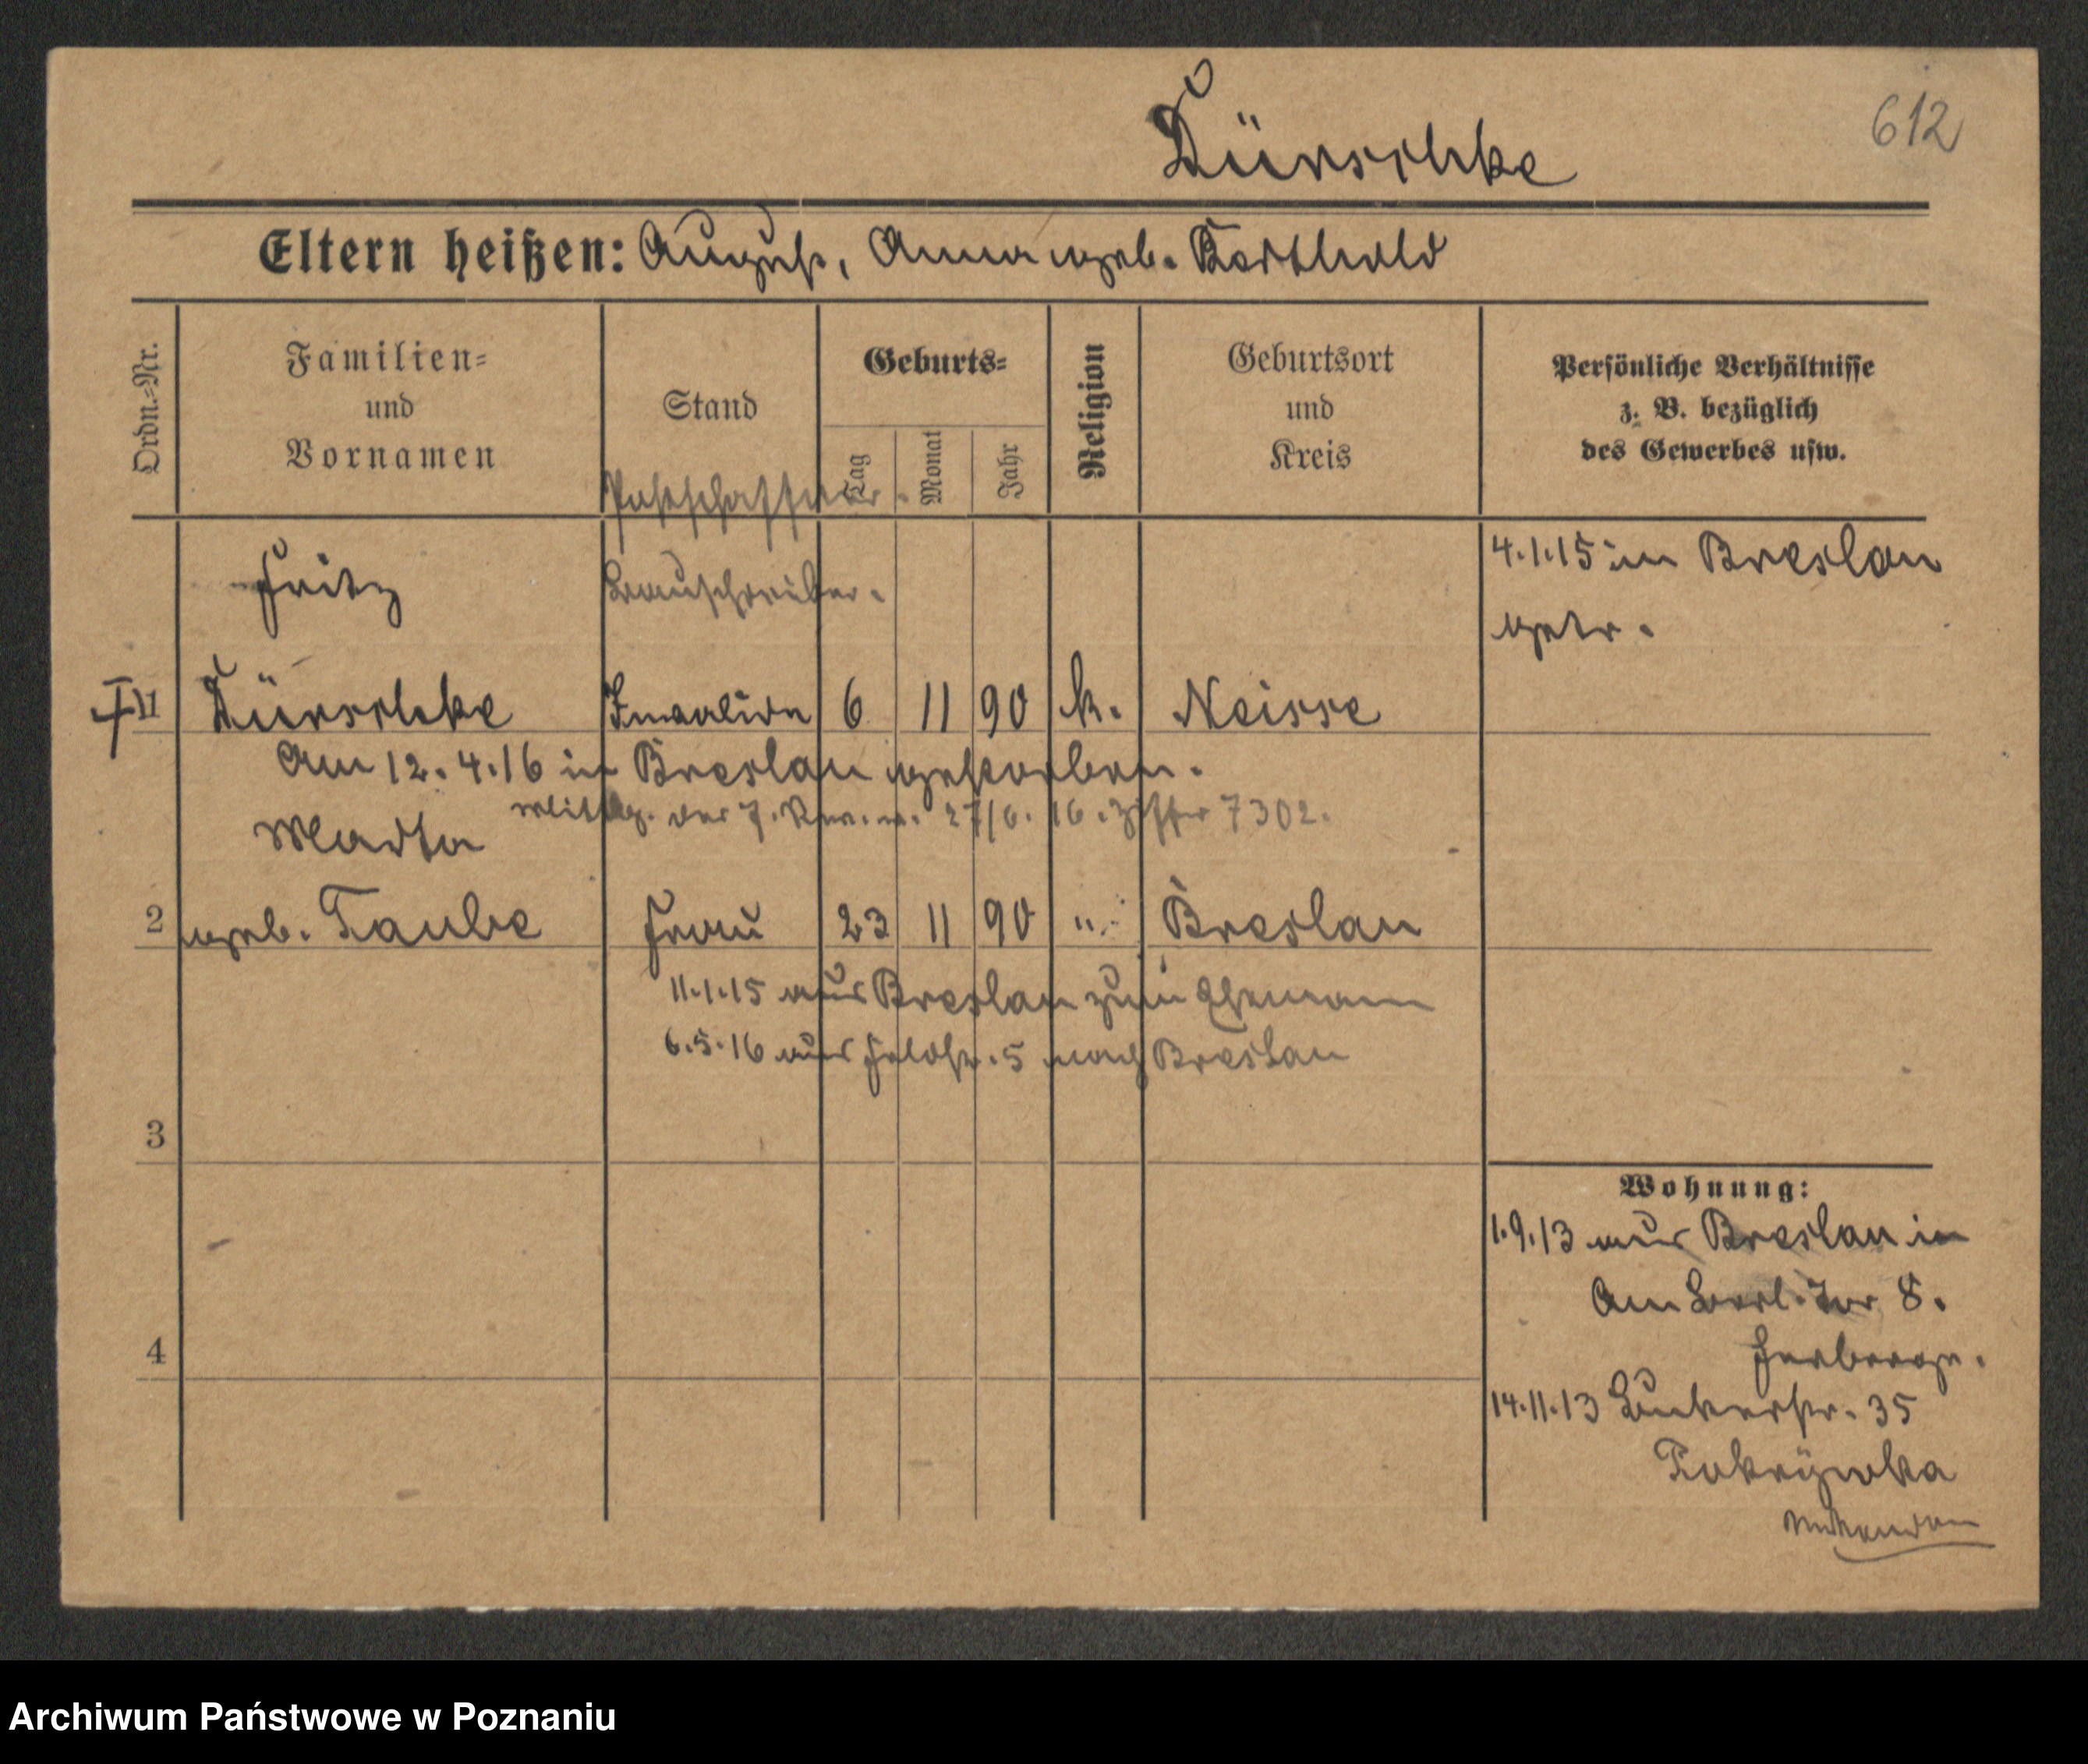 612
Dürschke
Eltern heißen: August, Anna geb. Berthold
Ordn.-Nr.
Familien-
und
Vornamen
Stand
Geburts-
Tag
Monat
Jahr
Religion
Geburtsort
und
Kreis
Persönliche Verhältnisse
z. B. bezüglich
des Gewerbes usw.
Postschaffner.
Fritz
Bauschreiber.
4.1.15 in Breslau
getr.
1 Dürschke Invalide 6 11 90 k. Neisse
Am 12.4.16 in Breslau gestorben.
Mittlg. der 7. 27/6. 16. Ziffer 7302.
Marta
2 geb. Taube Frau 23 11 90 " Breslau
11.1.15 aus Breslau zum Ehemann
6.5.16 aus Feldstr. 5 nach Breslau
3
4
Wohnung:
1.9.13 aus Breslau in
Am Berl. Tor 8.
Herberge.
14.11.13 Bukerstr. 35
Pokrzywka
Archiwum Państwowe w Poznaniu